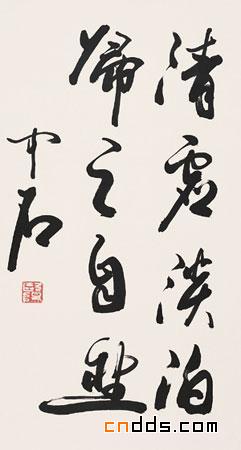 清虚淡泊
歸之自然
中石
cndds.com